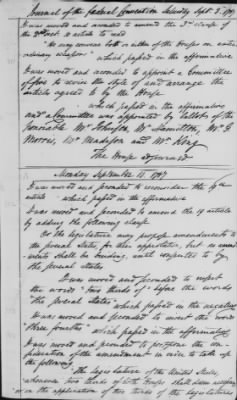 Journal of the Federal Convention Saturday Sept 8. 1787
It was moved and seconded to amend the 3rd clause of
the 2nd sect. 10 article to read
"He may convene both or either of the Houses on extra-
ordinary occasions" which passed in the affirmative
It was moved and seconded to appoint a Committee
of five to revise the style of and arrange the
articles agreed to by the House
which passed in the affirmative
and a Committee was appointed by ballot of the
honorable Mr Johnson, Mr Hamilton, Mr G
Morris, Mr Madison and Mr King.
The House adjourned
Monday September 10. 1787
It was moved and seconded to reconsider the 19th
article which passed in the affirmative
It was moved and seconded to amend the 19 article
by adding the following clause
Or the legislature may propose amendments to
the several States for their approbation, but no amend-
ments shall be binding until consented to by
the several states
It was moved and seconded to insert
the words "two thirds of" before the words
"the several states" which passed in the negative
It was moved and seconded to insert the words
"three fourths" which passed in the affirmative
It was moved and seconded to postpone the con-
sideration of the amendment in order to take up
the following
"The legislature of the United States,
whenever two thirds of both Houses shall deem necessary,
or on the application of two thirds of the legislatures